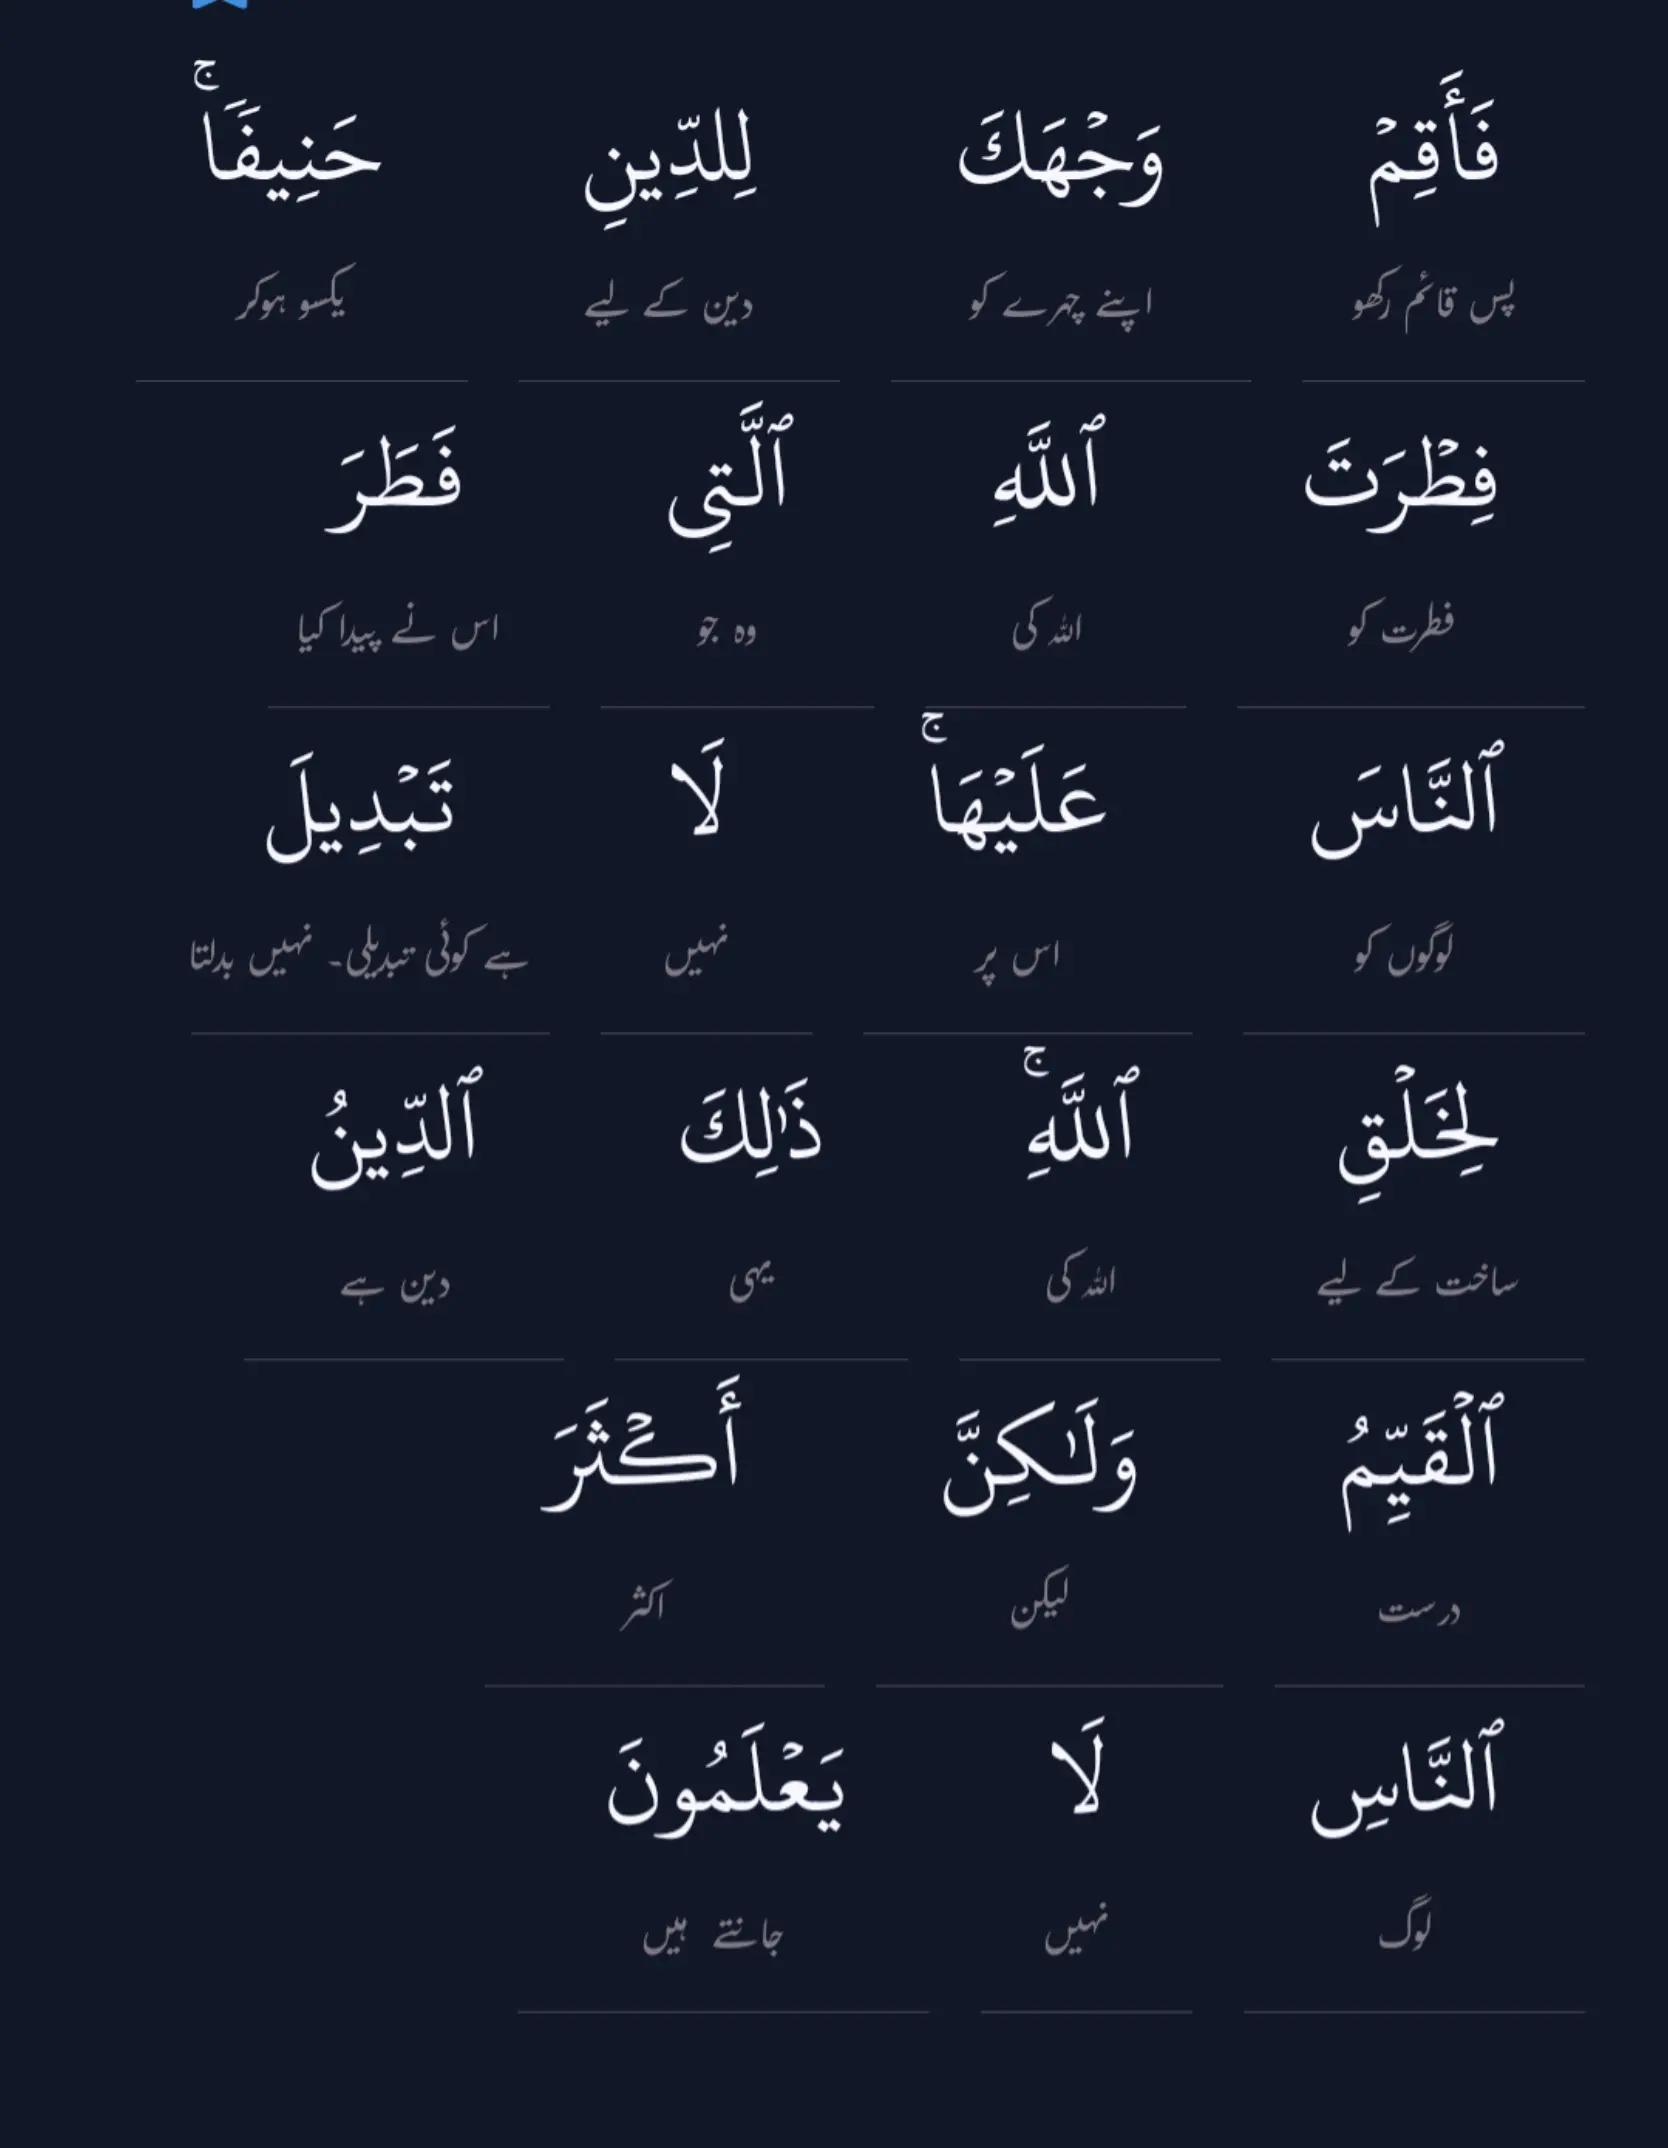 فَأَقِمْ وَجْهَكَ لِلدِّينِ حَنِيفًاۚ
پس قائم رکھو اپنے چہرے کو دین کے لیے یکسو ہوکر
فِطْرَتَ ٱللَّهِ ٱلَّتِي فَطَرَ
فطرت کو اللہ کی وہ جو اس نے پیدا کیا
ٱلنَّاسَ عَلَيْهَاۚ لَا تَبْدِيلَ
لوگوں کو اس پر نہیں ہے کوئی تبدیلی۔ نہیں بدلتا
لِخَلْقِ ٱللَّهِۚ ذَٰلِكَ ٱلدِّينُ
ساخت کے لیے اللہ کی یہی دین ہے
ٱلْقَيِّمُ وَلَـٰكِنَّ أَكْثَرَ
درست لیکن اکثر
ٱلنَّاسِ لَا يَعْلَمُونَ
لوگ نہیں جانتے ہیں